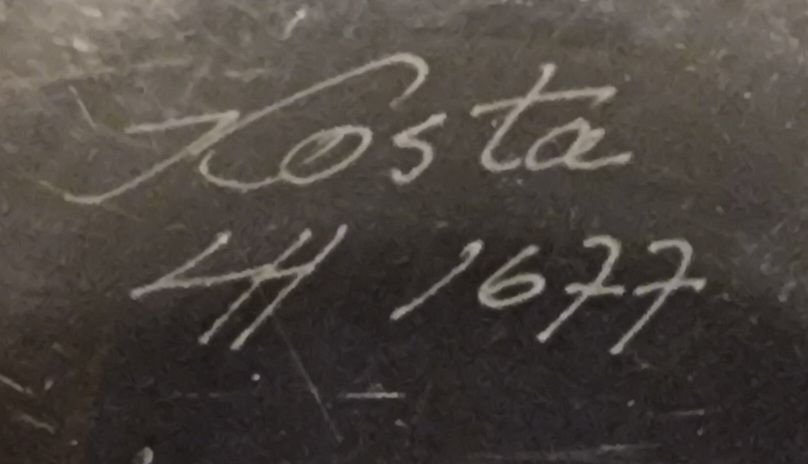 Kosta
LH 1677